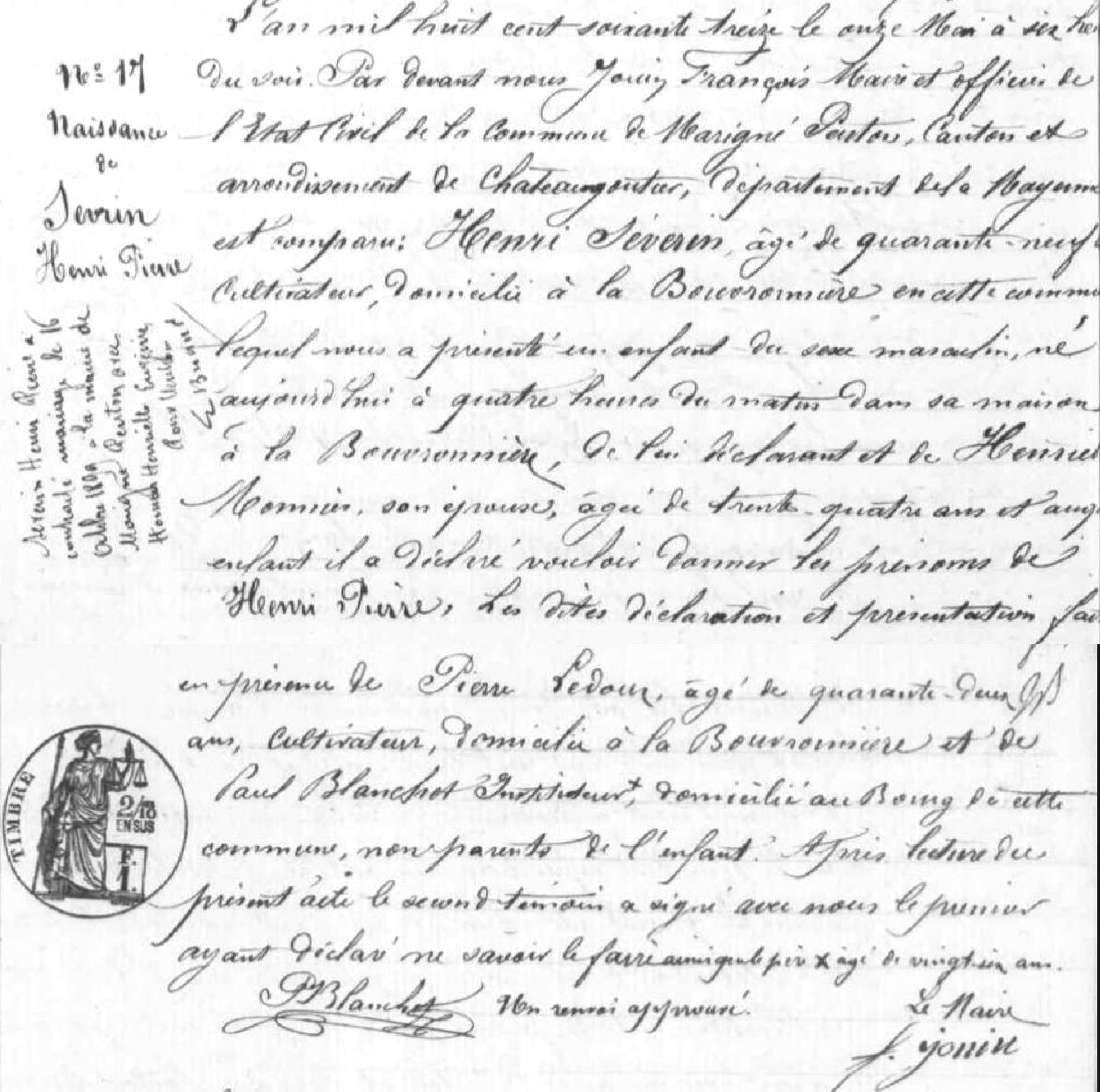 N° 17
Naissance
de
Sevrin
Henri Pierre
L'an mil huit cent soixante treize le onze Mai à six heu
du soir. Par devant nous Jouin François Maire et officier de
l'Etat Civil de la Commune de Marigné Peuton, Canton et
arrondissement de Chateaugontier, département de la Mayenne
est comparu: Henri Séverin, âgé de quarante-neuf
cultivateur, domicilié à la Bouvronnière en cette commu
lequel nous a présenté un enfant du sexe masculin, né
aujourd'hui à quatre heures du matin dans sa maison
à la Bouvronnière, de lui déclarant et de Henrie
Monnier, son épouse, âgée de trente-quatre ans et auq
enfant il a déclaré vouloir donner les prénoms de
Henri Pierre. Les dites déclaration et présentation fai
contracté mariage le 16
à la mairie de
Marigné Peuton avec
Henriette
en présence de Pierre Ledoux, âgé de quarante-deux
ans, cultivateur, domicilié à la Bouvronnière et de
Paul Blanchot Instituteur +, domicilié au Bourg de cette
commune, non parents de l'enfant. Après lecture du
présent acte le second témoin a signé avec nous le premier
ayant déclaré ne savoir le faire ainsi que le père X agé de vingt six ans.
PBlanchot
Un renvoi approuvé.
Le Maire
f. Jouin
TIMBRE
2/10
EN SUS
F.
1.